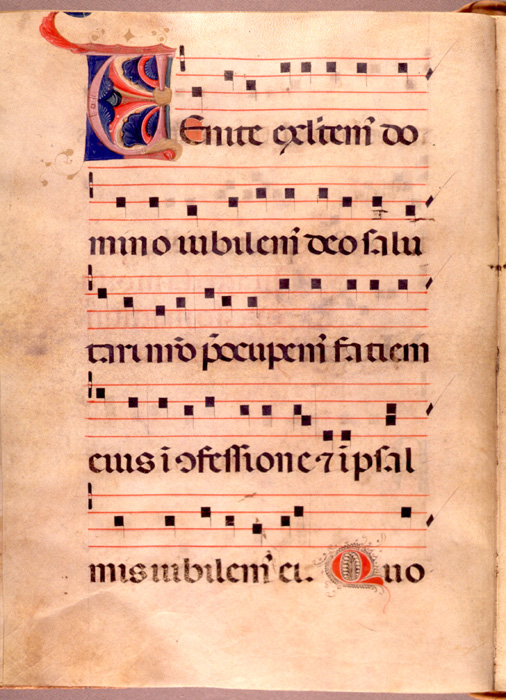 VEnite exultem' do
mino iubilem' deo salu
tari nr̄o p̄ocupem' faciem
eius ī ↄfessione ⁊ ī psal
mis iubilem' ei. Quo